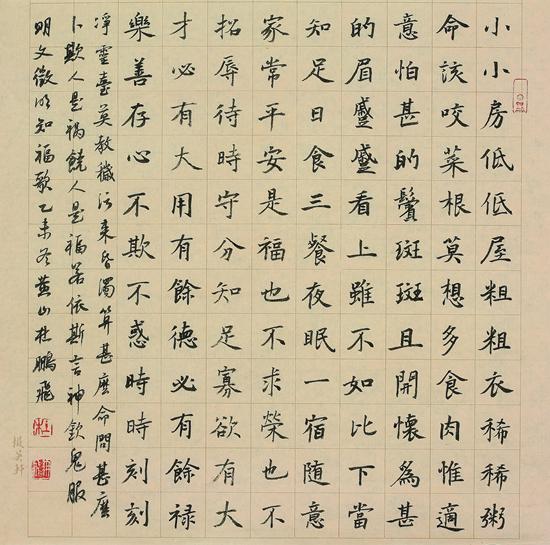 小小房低低屋粗粗衣稀稀粥
命該咬菜根莫想多食肉惟適
意怕甚的鬢斑斑且開懷為甚
的眉蹙蹙看上雖不如比下當
知足日食三餐夜眠一宿随意
家常平安是福也不求榮也不
招辱待時守分知足寡欲有大
才必有大用有餘德必有餘禄
樂善存心不欺不惑時時刻刻
凈靈臺莫教穢污来昏濁算甚麼命問甚麼
卜欺人是禍饒人是福若依斯言神欽鬼服
明文徵明知福歌乙未冬黄山杜鵬飛